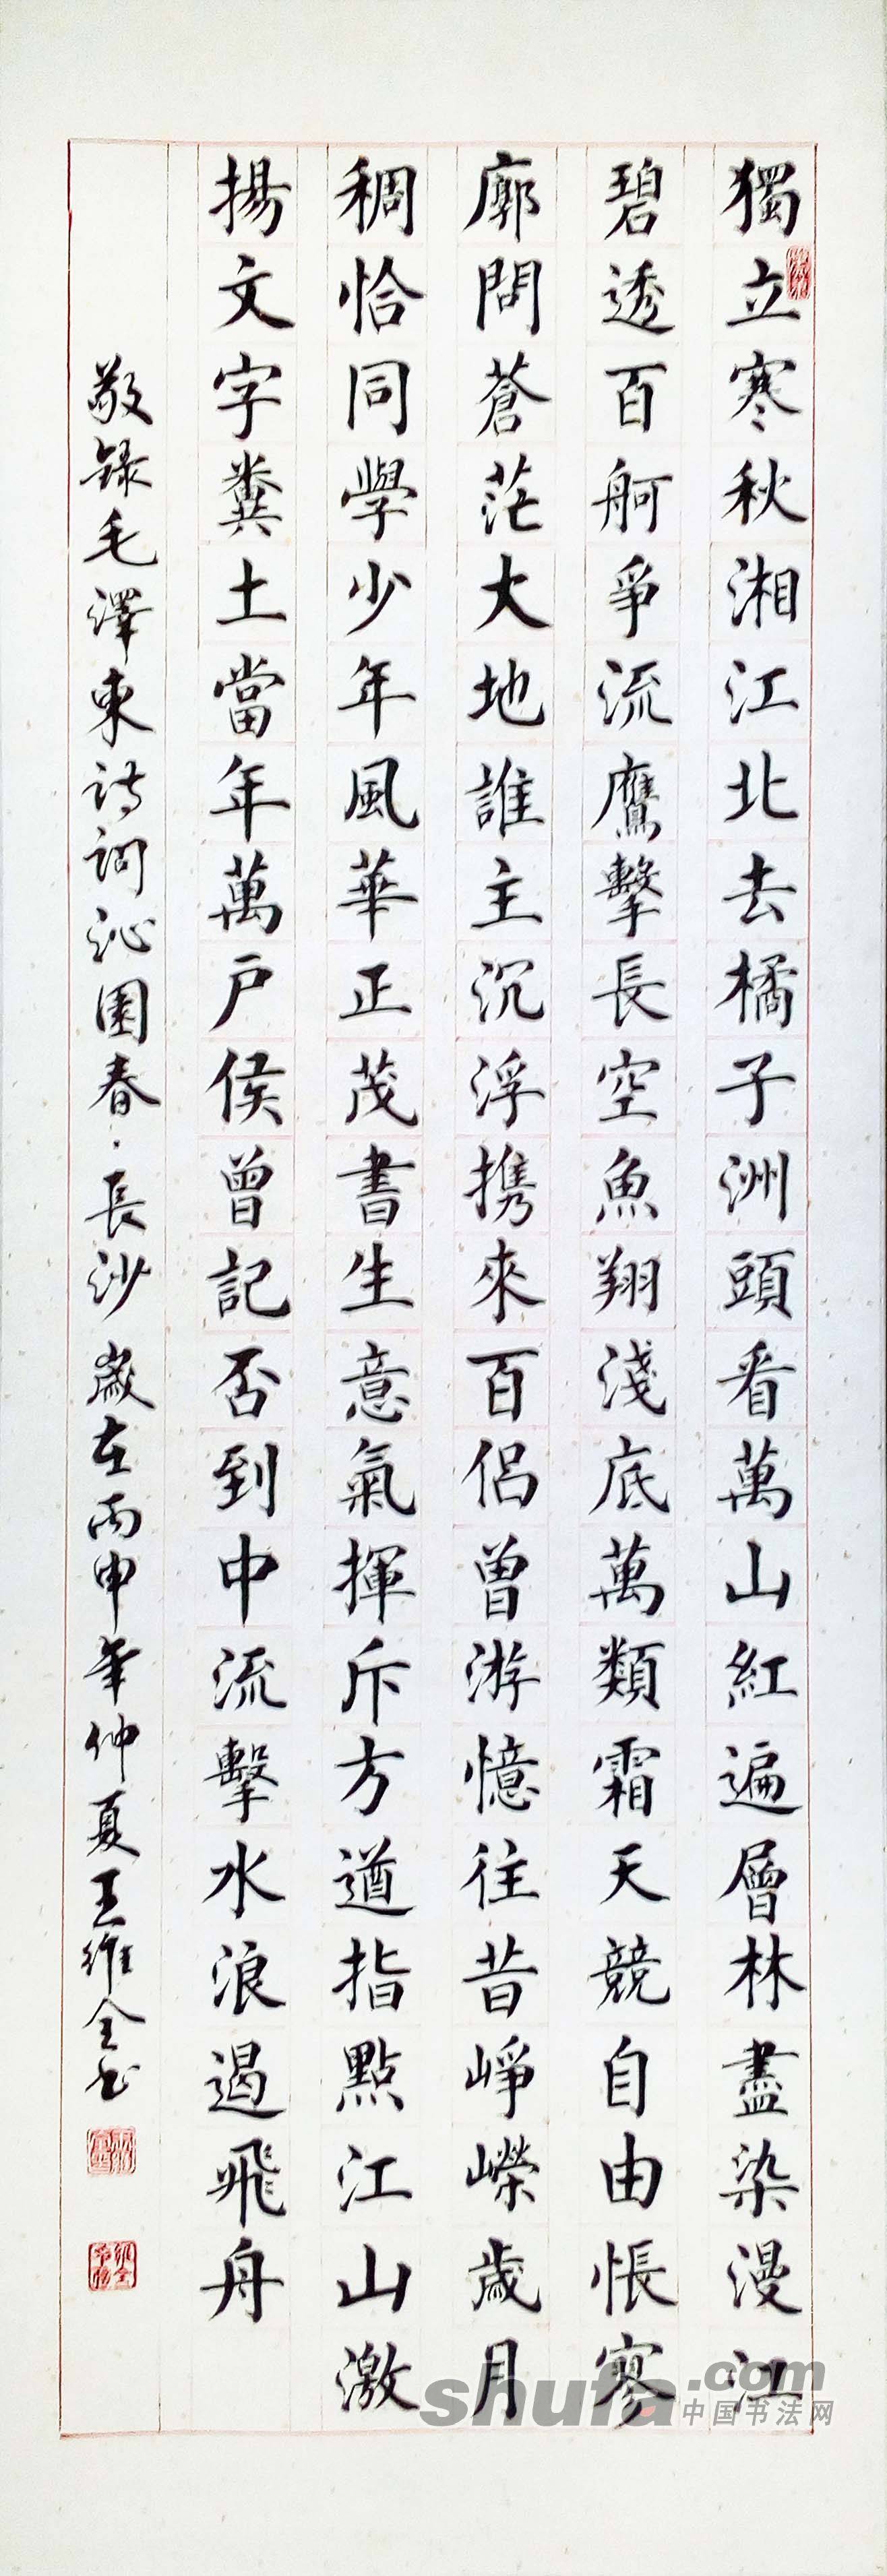 獨立寒秋湘江北去橘子洲頭看萬山紅遍層林盡染漫江
碧透百舸爭流鷹擊長空魚翔淺底萬類霜天競自由悵寥
廓問蒼茫大地誰主沉浮携來百侣曾游憶往昔崢嶸歲月
稠恰同學少年風華正茂書生意氣揮斥方遒指點江山激
揚文字糞土當年萬户侯曾記否到中流擊水浪遏飛舟
敬録毛澤東詩詞沁園春·長沙 歲在丙申年仲夏王維全书
shufa.com
中国书法网